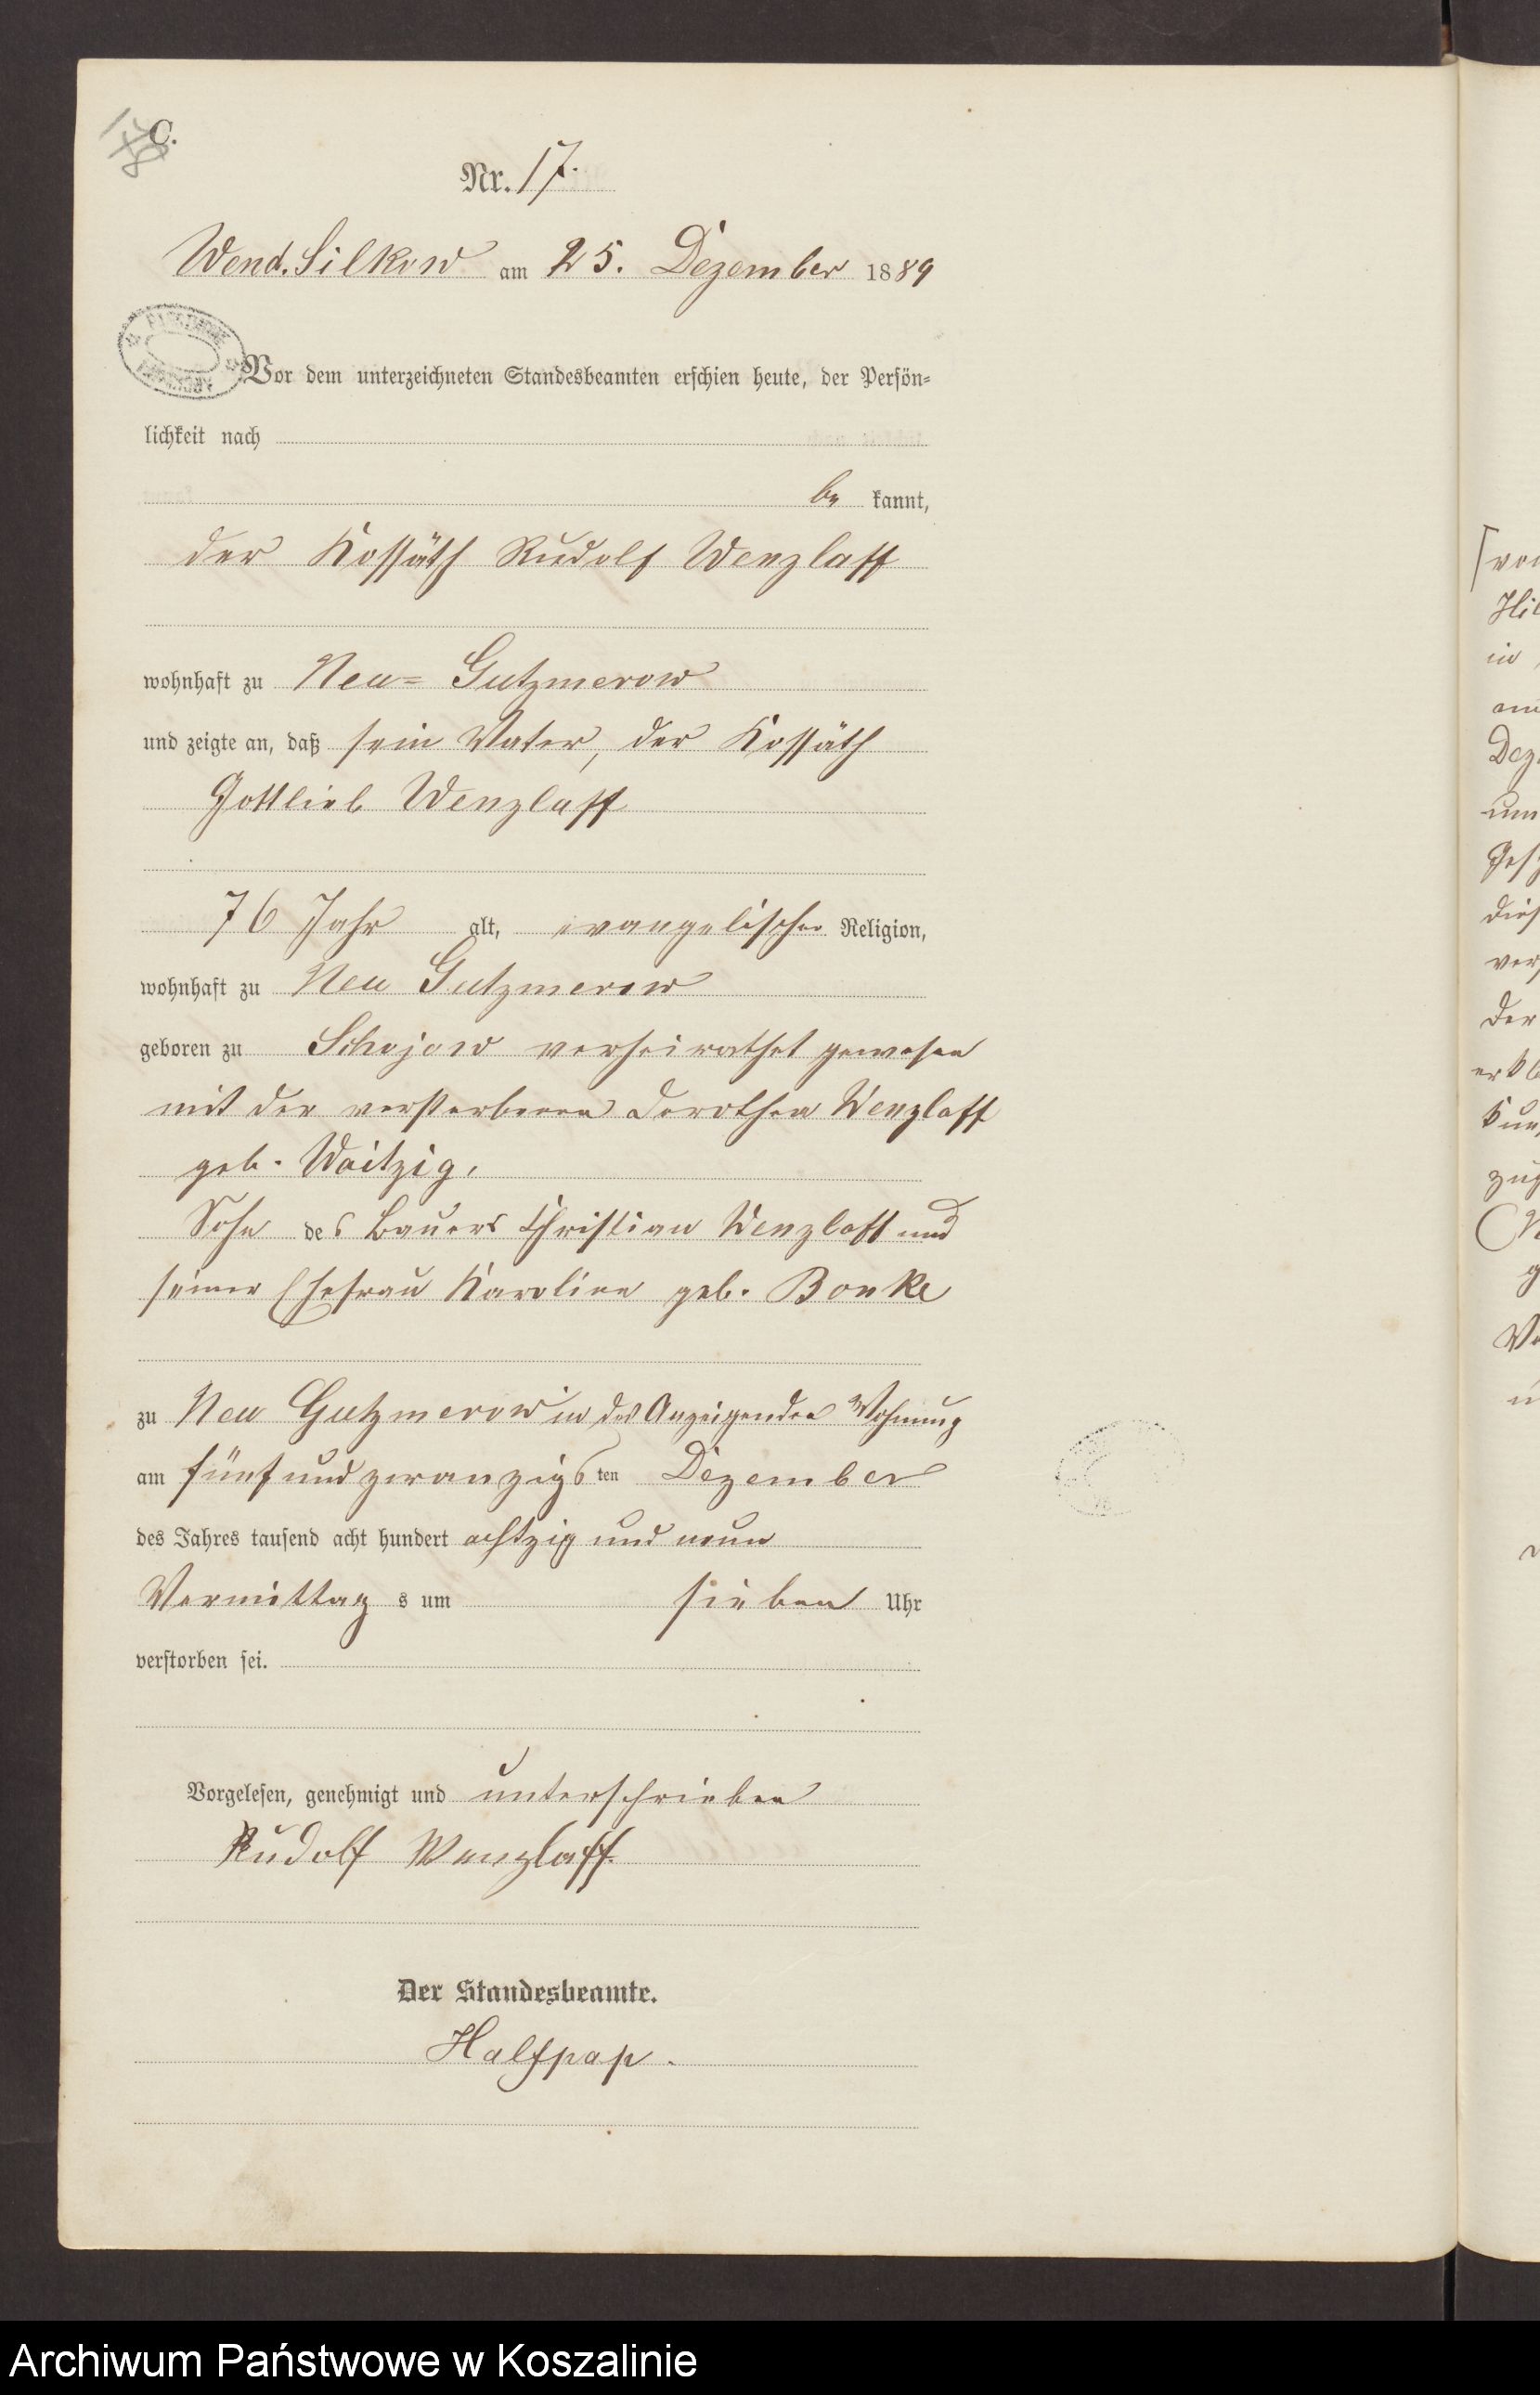 C.
Nr. 17.
Wend. Silkow am 25. Dezember 1889
Vor dem unterzeichneten Standesbeamten erschien heute, der Persön-
lichkeit nach
be kannt,
der Kossäth Rudolf Wenzlaff
wohnhaft zu Neu- Gutzmerow
und zeigte an, daß sein Vater, der Kossäth
Gottlieb Wenzlaff
76 Jahr alt, evangelischer Religion,
wohnhaft zu Neu Gutzmerow
geboren zu Schojow verheirathet gewesen
mit der verstorbenen Dorothea Wenzlaff
geb. Woitzig,
Sohn des Bauers Christian Wenzlaff und
seiner Ehefrau Karoline geb. Bonke
zu Neu Gutzmerow in des Anzeigenden Wohnung
am fünf und zwanzigsten Dezember
des Jahres tausend acht hundert achtzig und neun
Vormittags um sieben Uhr
verstorben sei.
Vorgelesen, genehmigt und unterschrieben
Rudolf Wenzlaff.
Der Standesbeamte.
Halfpap.
Archiwum Państwowe w Koszalinie